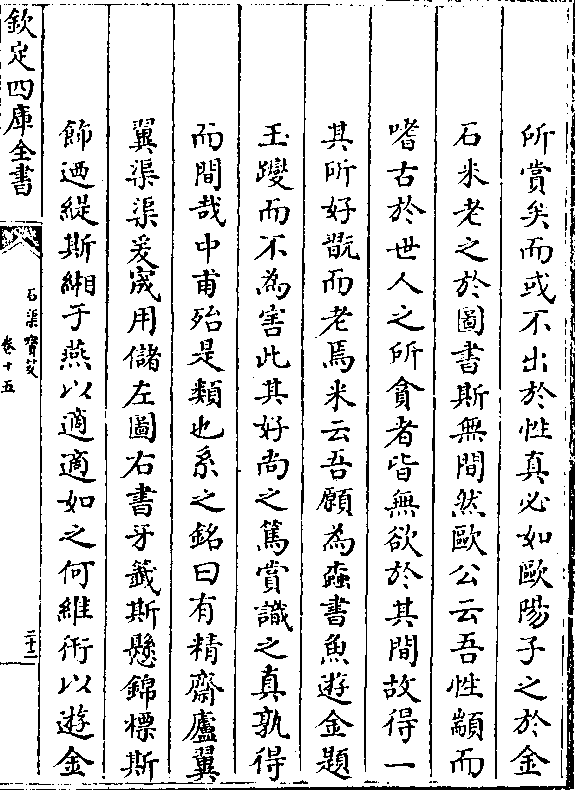 所賞矣而或不出於性真必如歐陽子之於金
石米老之於圖書斯無間然歐公云吾性顓而
嗜古於世人之所貪者皆無欲於其間故得一
其所好翫而老焉米云吾願為蠧書魚遊金題
玉躞而不為害此其好尚之篤賞識之真孰得
而間哉中甫殆是類也系之銘曰有精齋廬翼
翼渠渠爰宬用儲左圖右書牙籤斯懸錦標斯
飾迺緹斯緗于燕以適適如之何維術以遊金
欽定四庫全書
石渠寳笈
卷十五
三十二